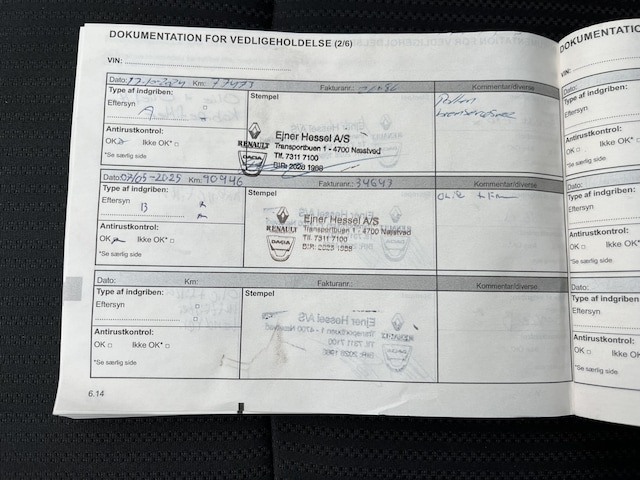 DOKUMENTATION FOR VEDLIGEHOLDELSE (2/6)
VIN:
Dato: Km: Fakturanr.: Kommentar/diverse
Type af indgriben: Stempel
Eftersyn A
Antirustkontrol:
OK Ikke OK*
*Se særlig side
RENAULT
DACIA
Ejner Hessel A/S
Transportbuen 1 - 4700 Næstved
Tlf. 7311 7100
BIR: 2028 1988
Dato: 07/05-2025 Km: 90946 Fakturanr.: 34643 Kommentar/diverse
Type af indgriben: Stempel
Eftersyn B
Antirustkontrol:
OK Ikke OK*
*Se særlig side
RENAULT
DACIA
Ejner Hessel A/S
Transportbuen 1 - 4700 Næstved
Tlf. 7311 7100
BIR: 2028 1988
Dato: Km: Fakturanr.: Kommentar/diverse
Type af indgriben: Stempel
Eftersyn
Antirustkontrol:
OK Ikke OK*
*Se særlig side
6.14
DOKUMENTATION
VIN:
Dato:
Type af indgriben:
Eftersyn
Antirustkontrol:
OK Ikke OK*
*Se særlig side
Dato:
Type af indgriben:
Eftersyn
Antirustkontrol:
OK Ikke
*Se særlig side
Dato:
Type af indgriben:
Eftersyn
Antirustkontrol:
OK Ikke
*Se særlig side